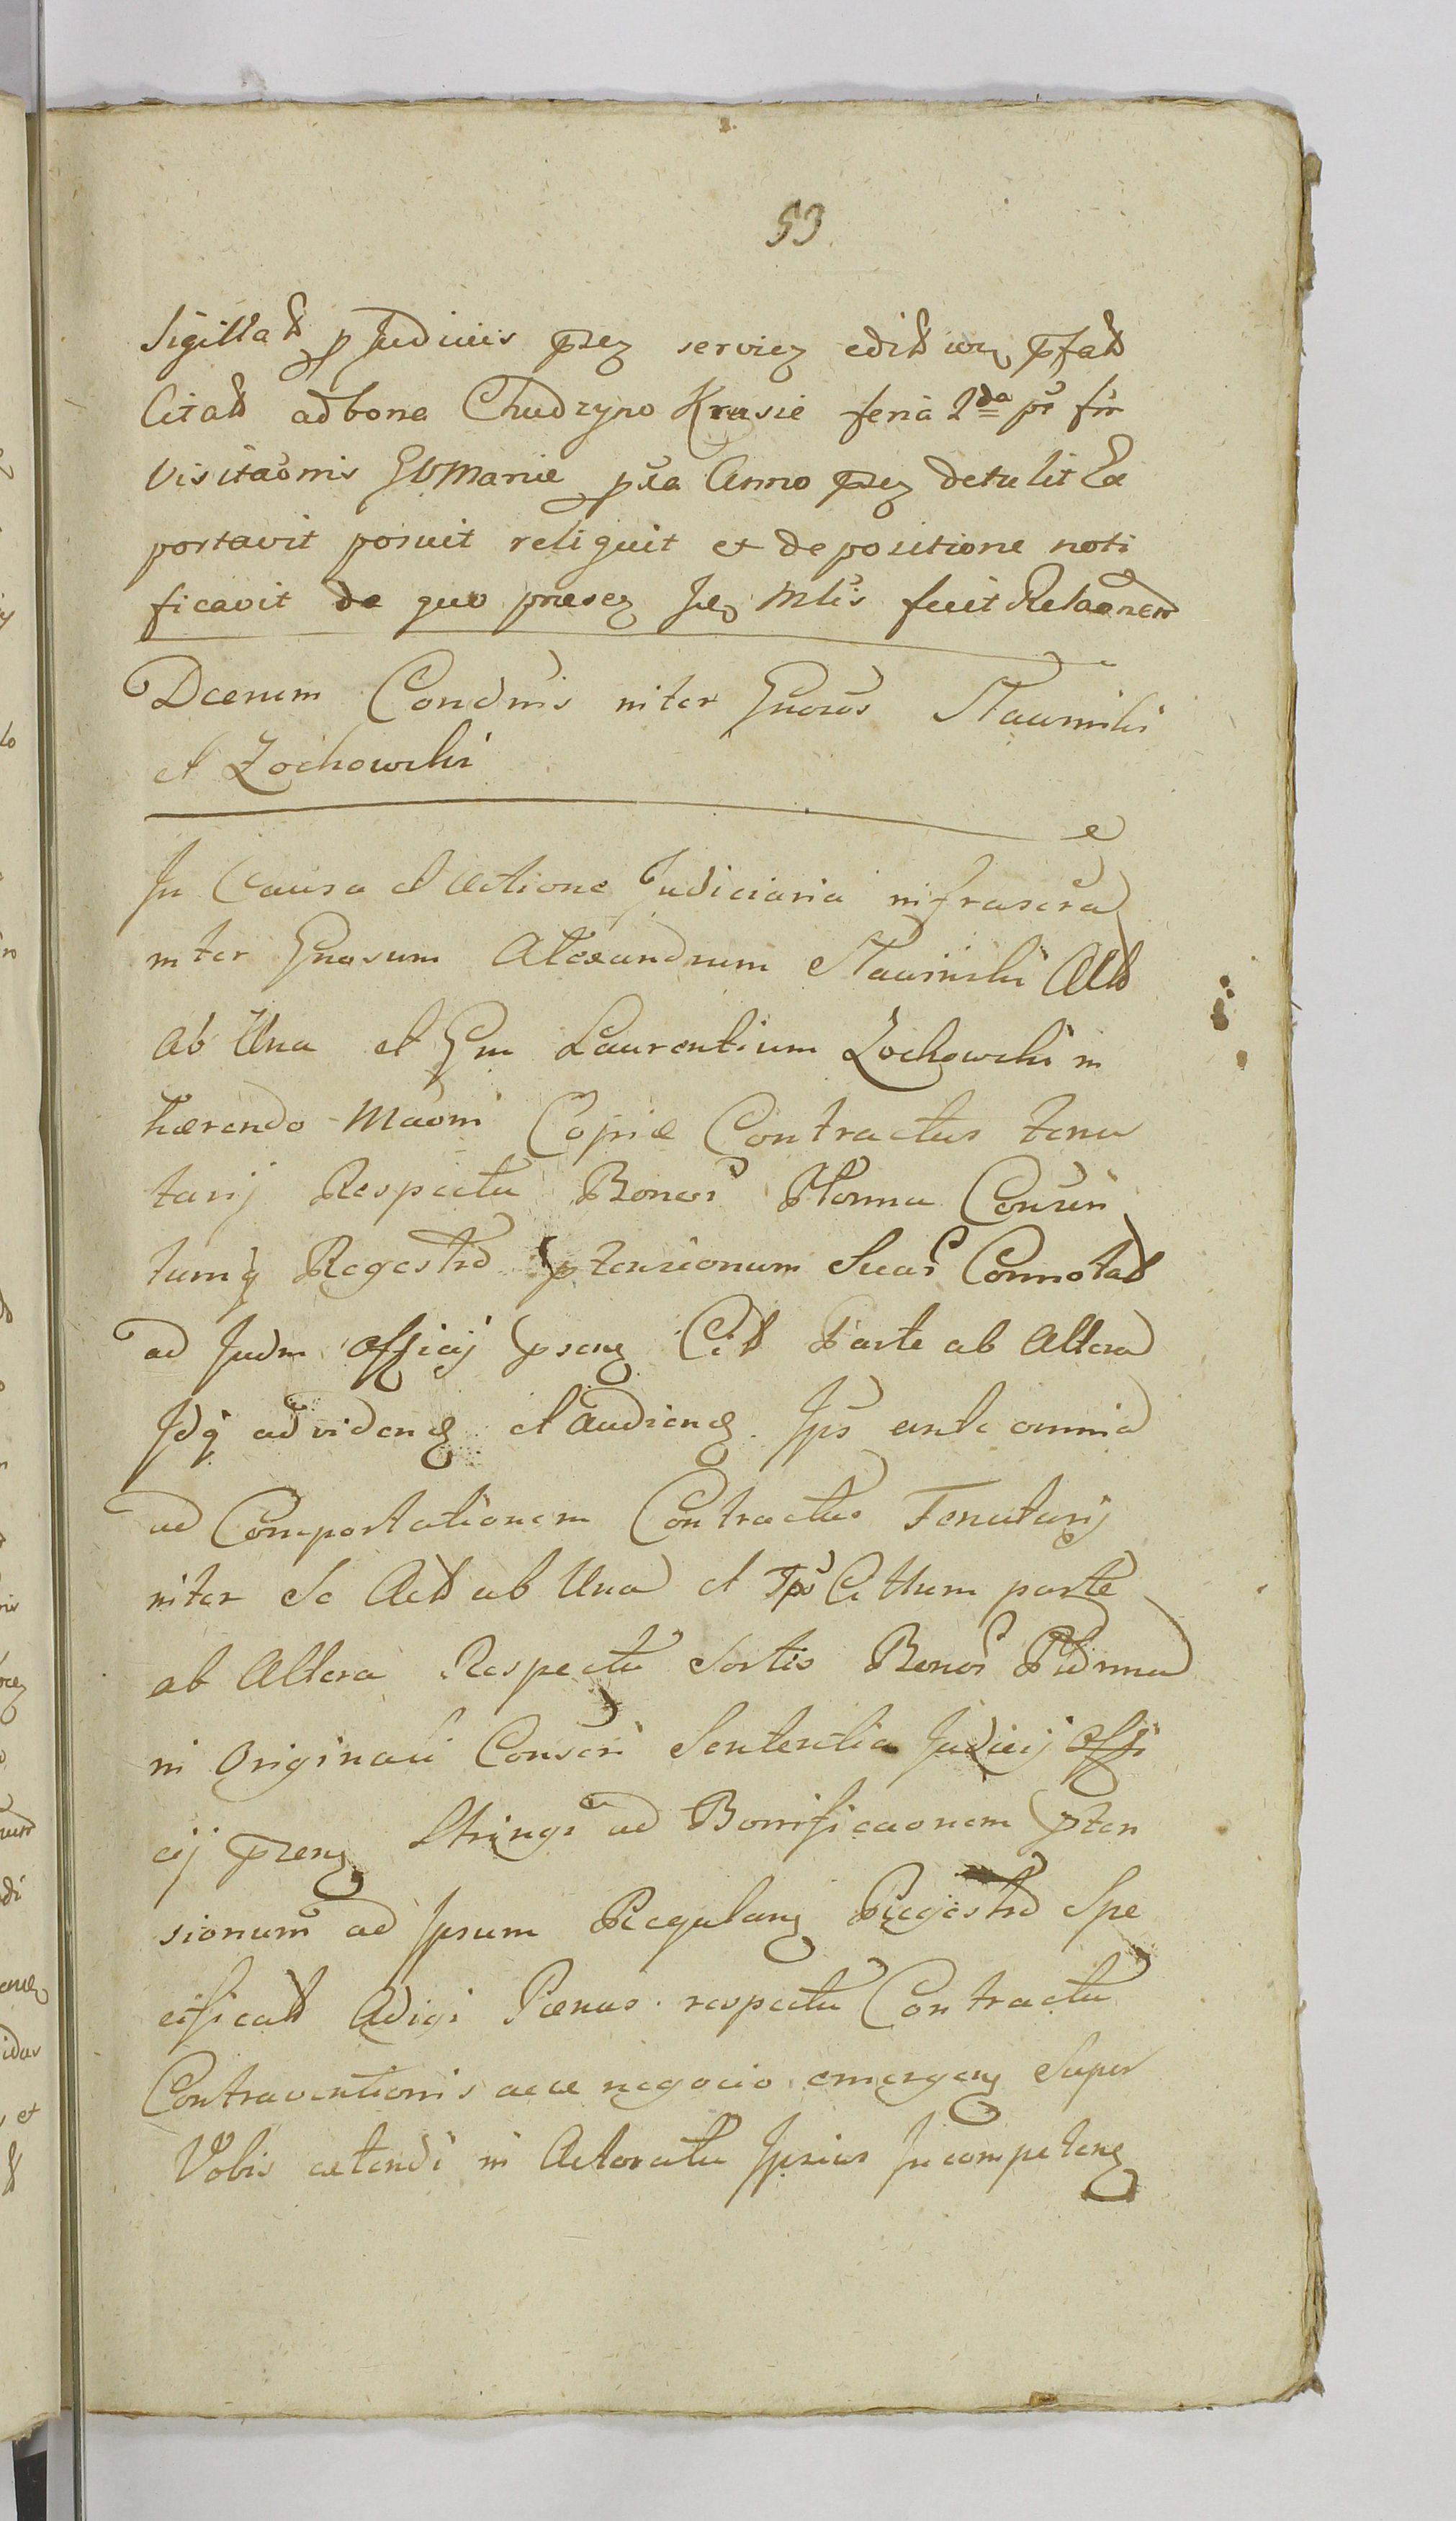 53
Sigillat p Judiciis prez serviez edit prfat
Citat ad bona Chudzyno Krusie feria 2da pt ftr
Visitaonis BVMariae pxa Anno prez detulit Ea
portavit posuit reliquit et de positione noti
ficavit de quo praesez Mlis fecit Relaonem
Dcernm Condnis inter Gnosos Stawinski
et Zochowski
In Causa et actione Judiciaria infrascra
inter Gnosum Alexandrum Stawinski Act
ab Una et Gm Laurentium Zochowski in
haerendo Maoni Copiae Contractus tenu
tarij Respectu Bonor Plonna Conscri
tumq Regestro ptensionum Suar Connotat
ad Judm Officij psenz Cit Parte ab Altera
Idq ad videnz et audienz Ips ante omnia
ad Comportationem Contractus Tenutarij
inter Se Act ab Una et Ips Cittum parte
ab Altera Respectu Sortis Bonor Plonna
in Originali Conscri Sententia Judicij Offi
cij przenz Stringi ad Bonificaonem pten
sionum ad Ipsum Regulanz Regestro Spe
cificat Adigi Paenas respectu Contractu
Contraventionis aeae negocio emergenz Super
Vobis extendi in Actoratu Ipsius Incompetenz